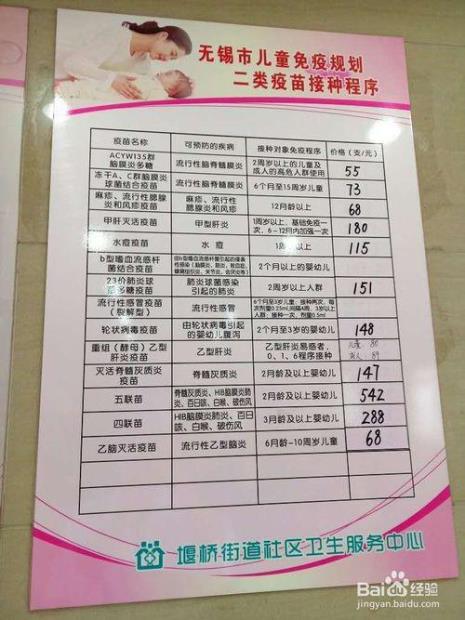 无锡市儿童免疫规划
二类疫苗接种程序
疫苗名称 可预防的疾病 接种对象免疫程序 价格(支/元)
ACYW135群
脑膜炎多糖 流行性脑脊髓膜炎 2周岁以上的儿童及
成人的高危人群使用 55
冻干A、C群脑膜炎
球菌结合疫苗 流行性脑脊髓膜炎 6个月至15周岁儿童 73
麻疹、流行性腮腺
炎和风疹疫苗 麻疹、流行性腮腺
炎和风疹 12月龄以上 68
甲肝灭活疫苗 甲型肝炎 1周岁以上，基础免疫一
次，6-12月内加强一次 180
水痘疫苗 水痘 1周岁以上 115
b型嗜血流感杆
菌结合疫苗 2个月以上的婴幼儿
23价肺炎球
菌多糖疫苗 肺炎球菌感染
引起的肺炎 2周岁以上人群 151
流行性感冒疫苗
(裂解型) 流行性感冒
轮状病毒疫苗 由轮状病毒引起
的婴幼儿腹泻 2个月至3岁的婴幼儿 148
重组(酵母)乙型
肝炎疫苗 乙型肝炎 乙型肝炎易感者，
0、1、6程序接种
灭活脊髓灰质炎
疫苗 脊髓灰质炎 2月龄及以上婴幼儿 147
五联苗 脊髓灰质炎、HIB脑膜炎肺
炎、百日咳、白喉、破伤风 2月龄及以上婴幼儿 542
四联苗 HIB脑膜炎肺炎、百日
咳、白喉、破伤风 3月龄及以上婴幼儿 288
乙脑灭活疫苗 流行性乙型脑炎 6月龄-10周岁儿童 68
堰桥街道社区卫生服务中心
Baidu经验
jingyan.baidu.com